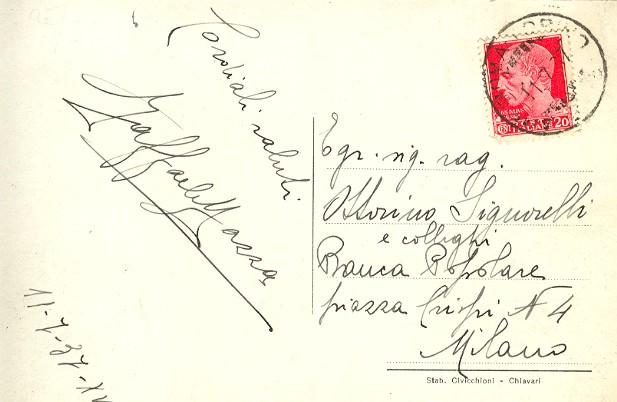 Cordiali saluti
Raffaele Mazza
11-7-37-XV
Egr. sig. rag.
Ottorino Signorelli
e colleghi
Banca Popolare
piazza Crispi N 4
Milano
Stab. Civicchioni - Chiavari
ITALIANE 20